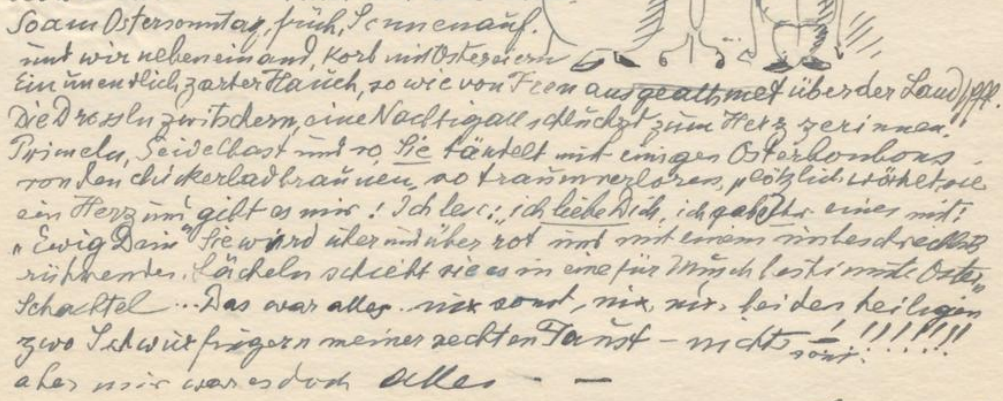 So am Ostersonntag, früh, Sonnenauf.
und wir nebeneinand, Korb mit Ostereiern
Ein unendlich zarter Hauch, so wie von Feen ausgeathmet über der Land
Die Drosseln zwitschern, eine Nachtigall schluchzt zum Herz zerinnen.
Primeln, Seidelbast und so, Sie tändelt mit einigen Osterbonbons
von den so traumverloren, plötzlich wählt sie
ein Herz und gibt es mir! Ich les: "ich liebe Dich, ich gab Ihr eines mit:
"Ewig Dein" Sie wird über und über rot und mit einem unbeschreiblich
rührenden Lächeln schiebt sie es in eine für Musch bestimmte Oster-
Schachtel ... Das war alles. nix sonst, nix, nix, bei den heiligen
zwo Schwurfingern meiner rechten Faust – nichts sonst – !!!!!!!
aber mir war es doch alles – –